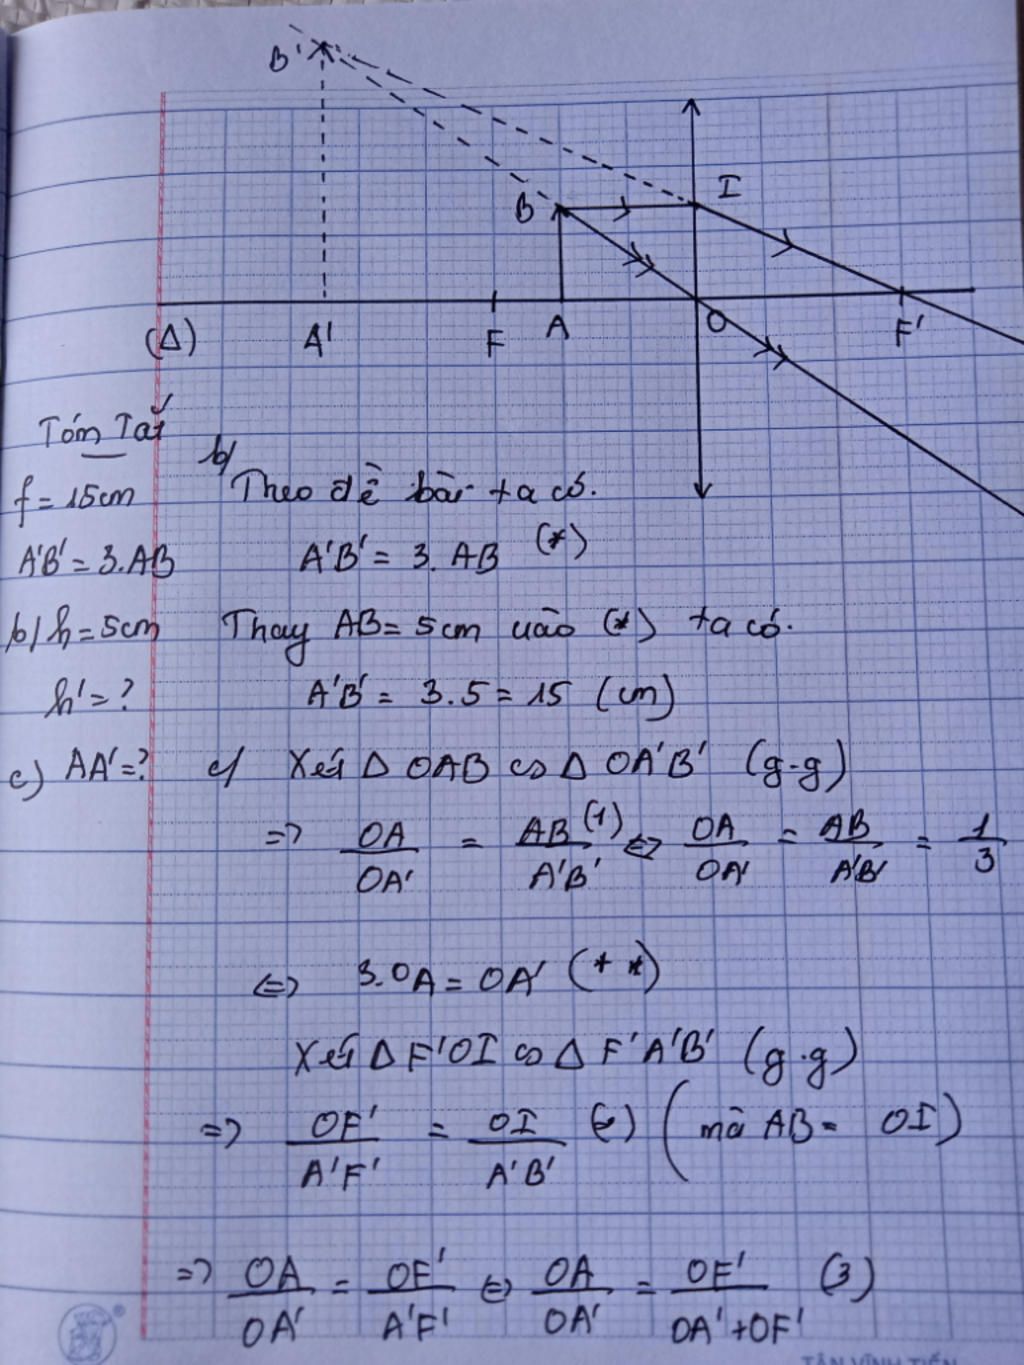 B'
B
I
(Δ)
A'
F
A
O
F'
Tóm Tắt
f = 15cm
A'B' = 3.AB
b/ h = 5cm
h' = ?
c) AA' = ?
b/
Theo đề bài ta có.
A'B' = 3. AB (*)
Thay AB = 5cm vào (*) ta có.
A'B' = 3.5 = 15 (cm)
c/ Xét Δ OAB ∽ Δ OA'B' (g-g)
=> OA/OA' = AB/A'B' (1) <=> OA/OA' = AB/A'B' = 1/3
<=> 3.OA = OA' (**)
Xét Δ F'OI ∽ Δ F'A'B' (g.g)
=> OF'/A'F' = OI/A'B' (2) (mà AB = OI)
=> OA/OA' = OF'/A'F' <=> OA/OA' = OF'/OA'+OF' (3)